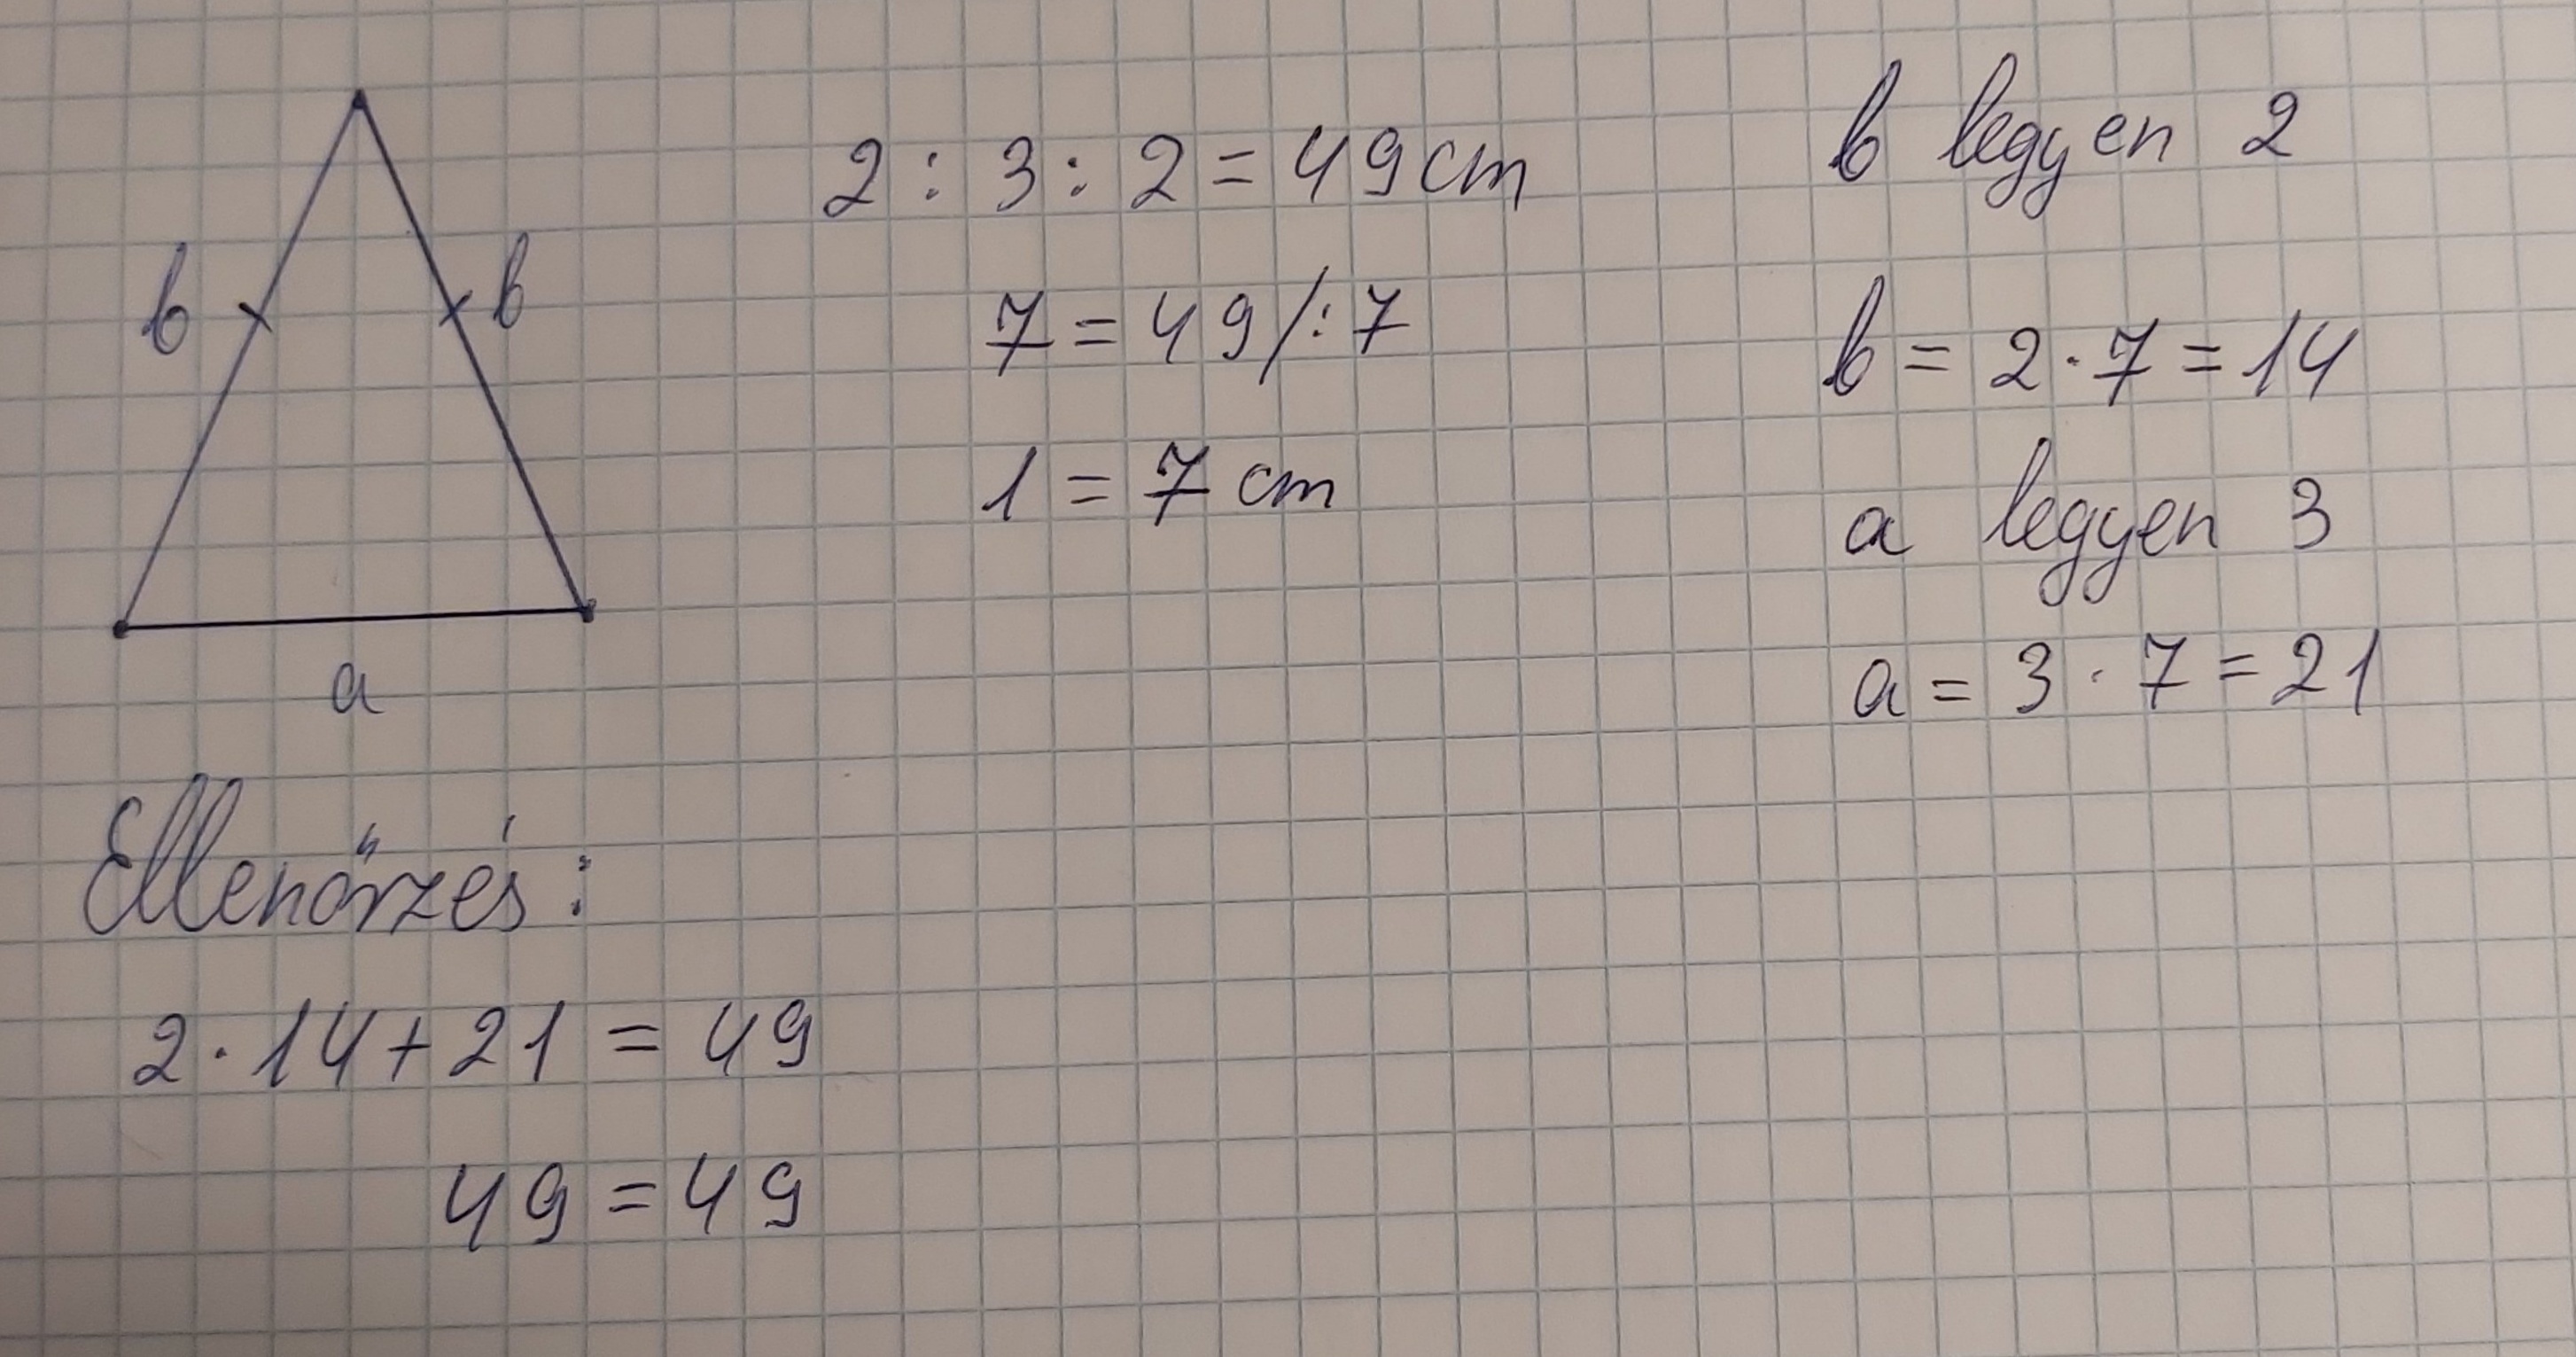 b
b
a
2 : 3 : 2 = 49 cm
7 = 49 /: 7
1 = 7 cm
b legyen 2
b = 2 · 7 = 14
a legyen 3
a = 3 · 7 = 21
Ellenőrzés:
2 · 14 + 21 = 49
49 = 49